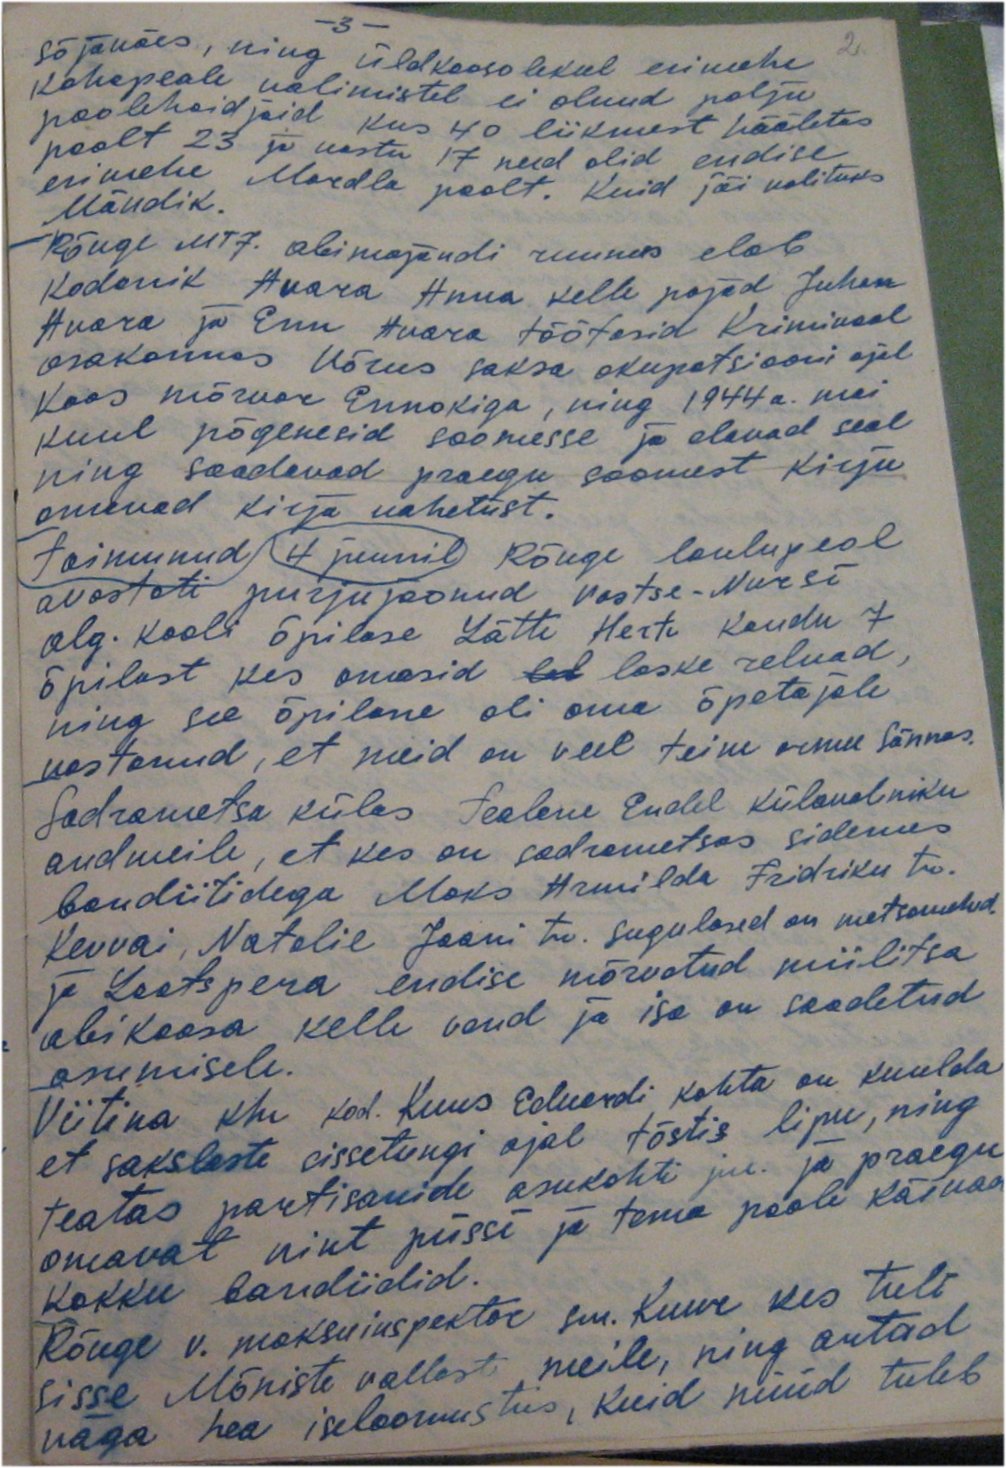 -3-
2.
sõjaväes, ning üldkoosolekul esimehe
kohapeale valimistel ei olnud palju
poolehoidjaid kus 40 liikmest hääletas
poolt 23 ja vastu 17 need olid endise
esimehe Mardla poolt. Kuid jäi valituks
Mändik.
Rõuge MTJ. abimajandi ruumes elab
Kodanik Avara Anna kelle pojad Juhan
Avara ja Enn Avara töötasid Kriminaal
osakonnas Võrus saksa okupatsiooni ajal
koos mõrvar Ennokiga, ning 1944 a. mai
kuul põgenesid soomesse ja elavad seal
ning saadavad praegu soomest kirju
omavad kirja vahetust.
Toimunud 4 juunil Rõuge laulupeol
avastati purjujoonud Vastse-Nursi
alg. kooli õpilase Lätte Herta kaudu 7
õpilast kes omasid laske relvad,
ning see õpilane oli oma õpetajale
vastanud, et meid on veel teine osa Sännas.
Sadrametsa külas Tealene Endel külavoliniku
andmeile, et kes on sadrametsas sidemes
bandiitidega Maks Armilda Fridriku tr.
Kevvai, Natalie Jaani tr. sugulased on metsamehed.
ja Laatspera endise mõrvatud miilitsa
abikaasa kelle vend ja isa on saadetud
asumisele.
Viitina khn kod. Kuus Eduardi kohta on kuulda
et sakslaste sissetungi ajal tõstis lipu, ning
teatas partisanide asukohti ja praegu
omavat vint püssi ja tema poole käivad
kokku bandiidid.
Rõuge v. maksuinspektor sm. Kuur kes tuli
sisse Mõniste vallast meile, ning antud
väga hea iseloomustus, kuid nüüd tuleb